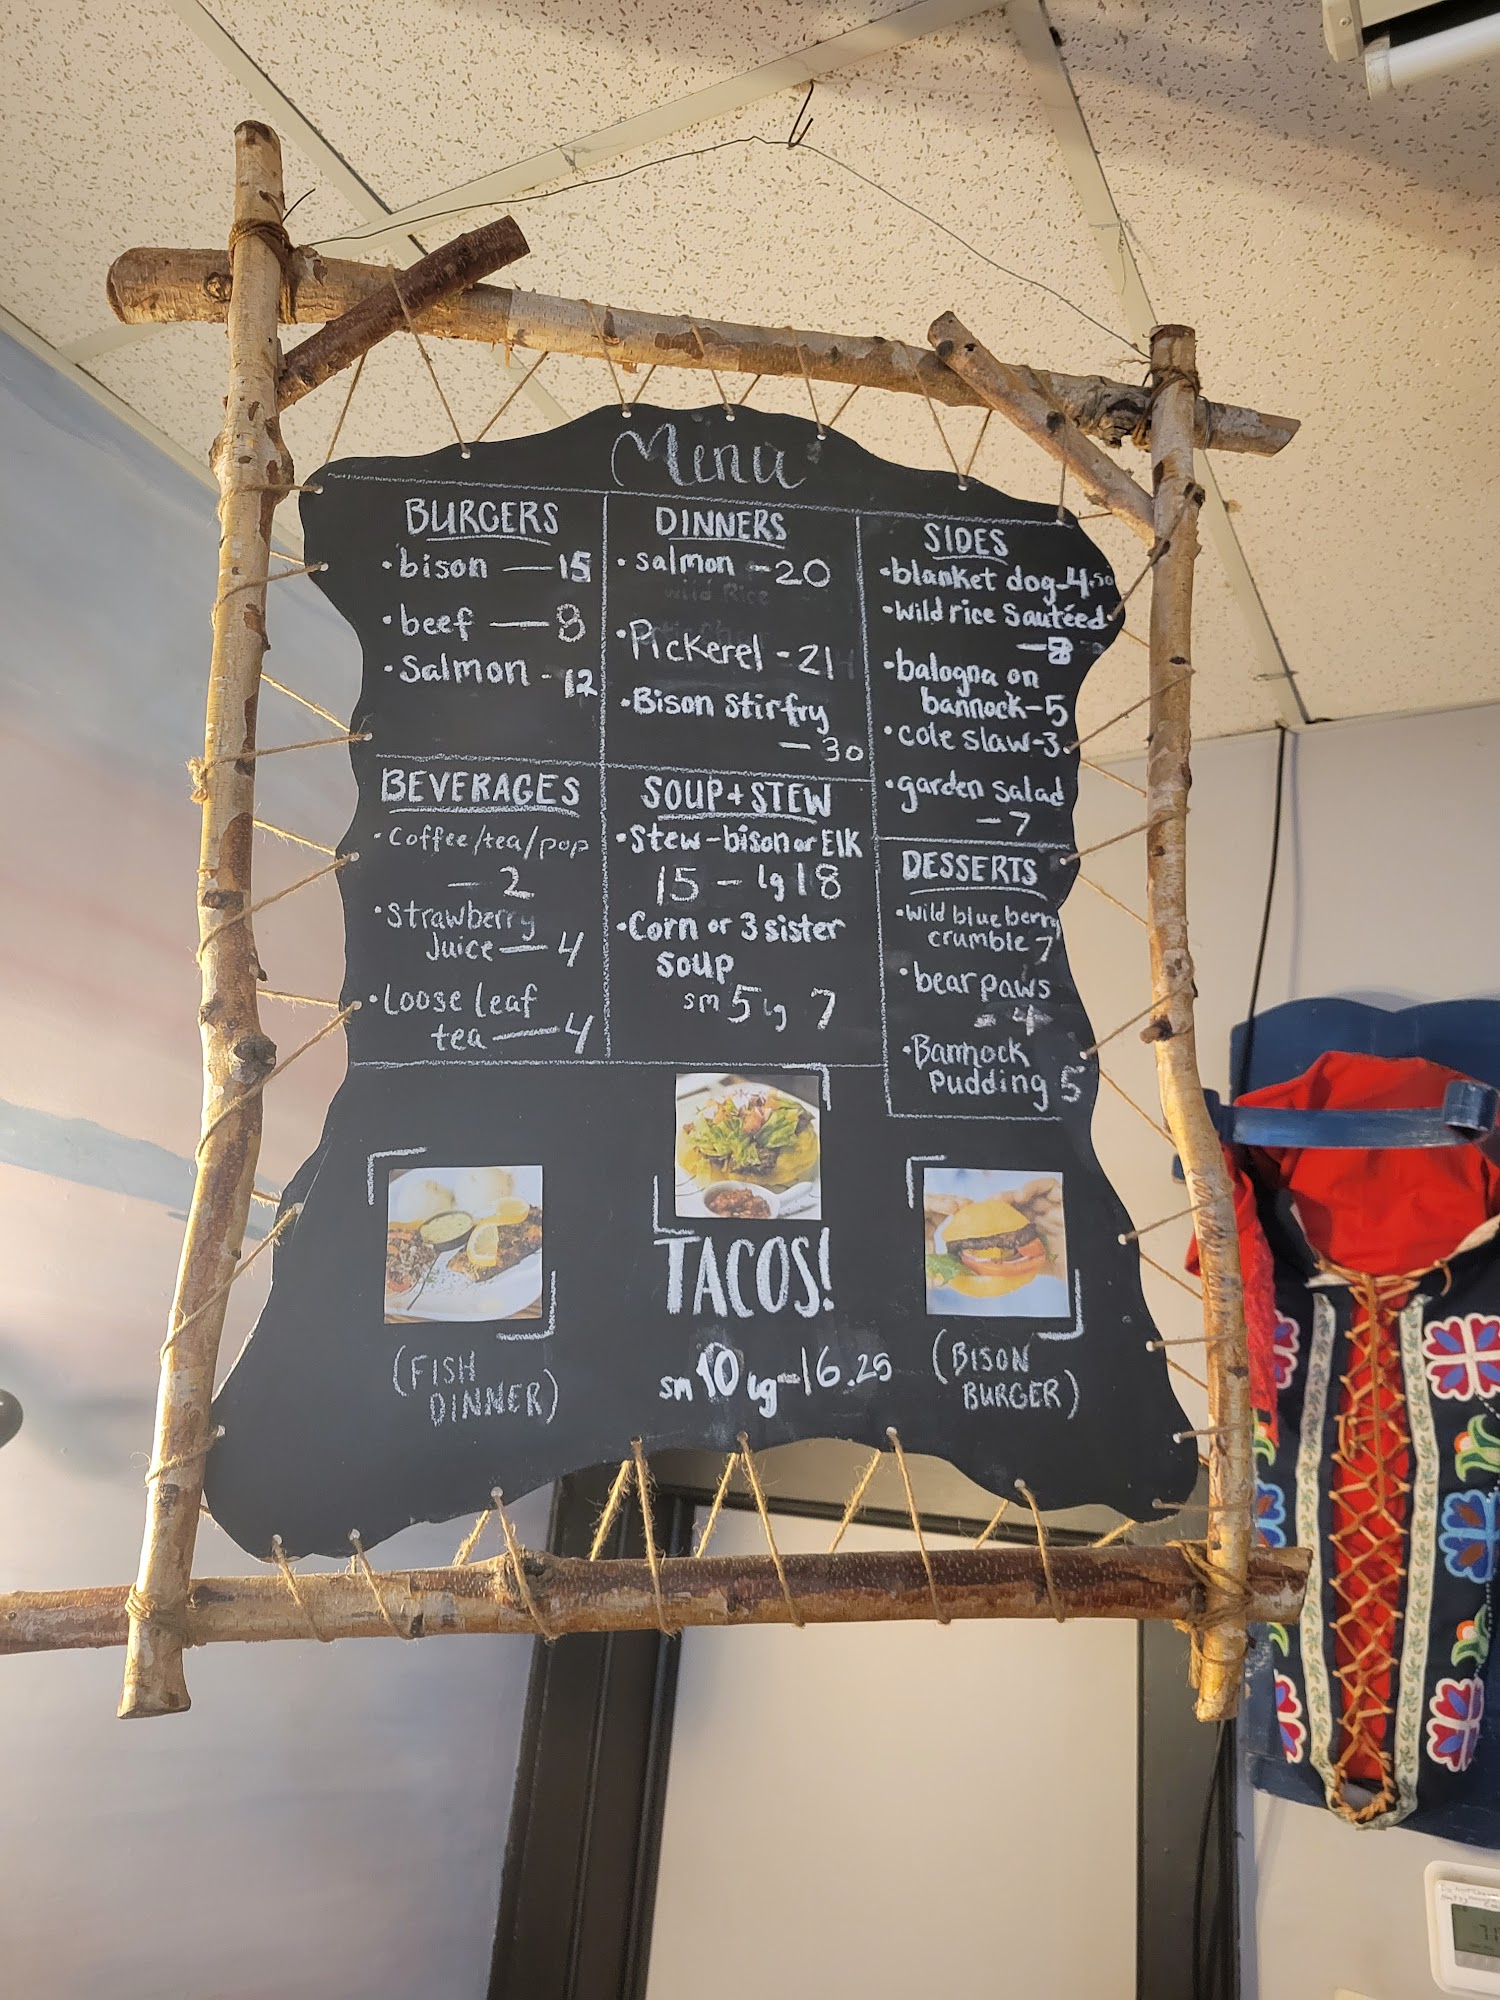 Menu
BURGERS
• bison — 15
• beef — 8
• Salmon - 12
DINNERS
• salmon - 20
wild Rice
• Pickerel - 21
• Bison stirfry
- 30
SIDES
• blanket dog - 4.50
• Wild rice Sautéed
- 8
• balogna on
bannock - 5
• cole slaw - 3
• garden salad
- 7
BEVERAGES
• Coffee/tea/pop
- 2
• Strawberry
Juice — 4
• Loose leaf
tea — 4
SOUP + STEW
• Stew - bison or Elk
15 - lg 18
• Corn or 3 sister
soup
sm 5 lg 7
DESSERTS
• Wild blueberry
crumble 7
• bear paws
- 4
• Bannock
Pudding 5
(FISH
DINNER)
TACOS!
sm 10 lg - 16.25
(BISON
BURGER)